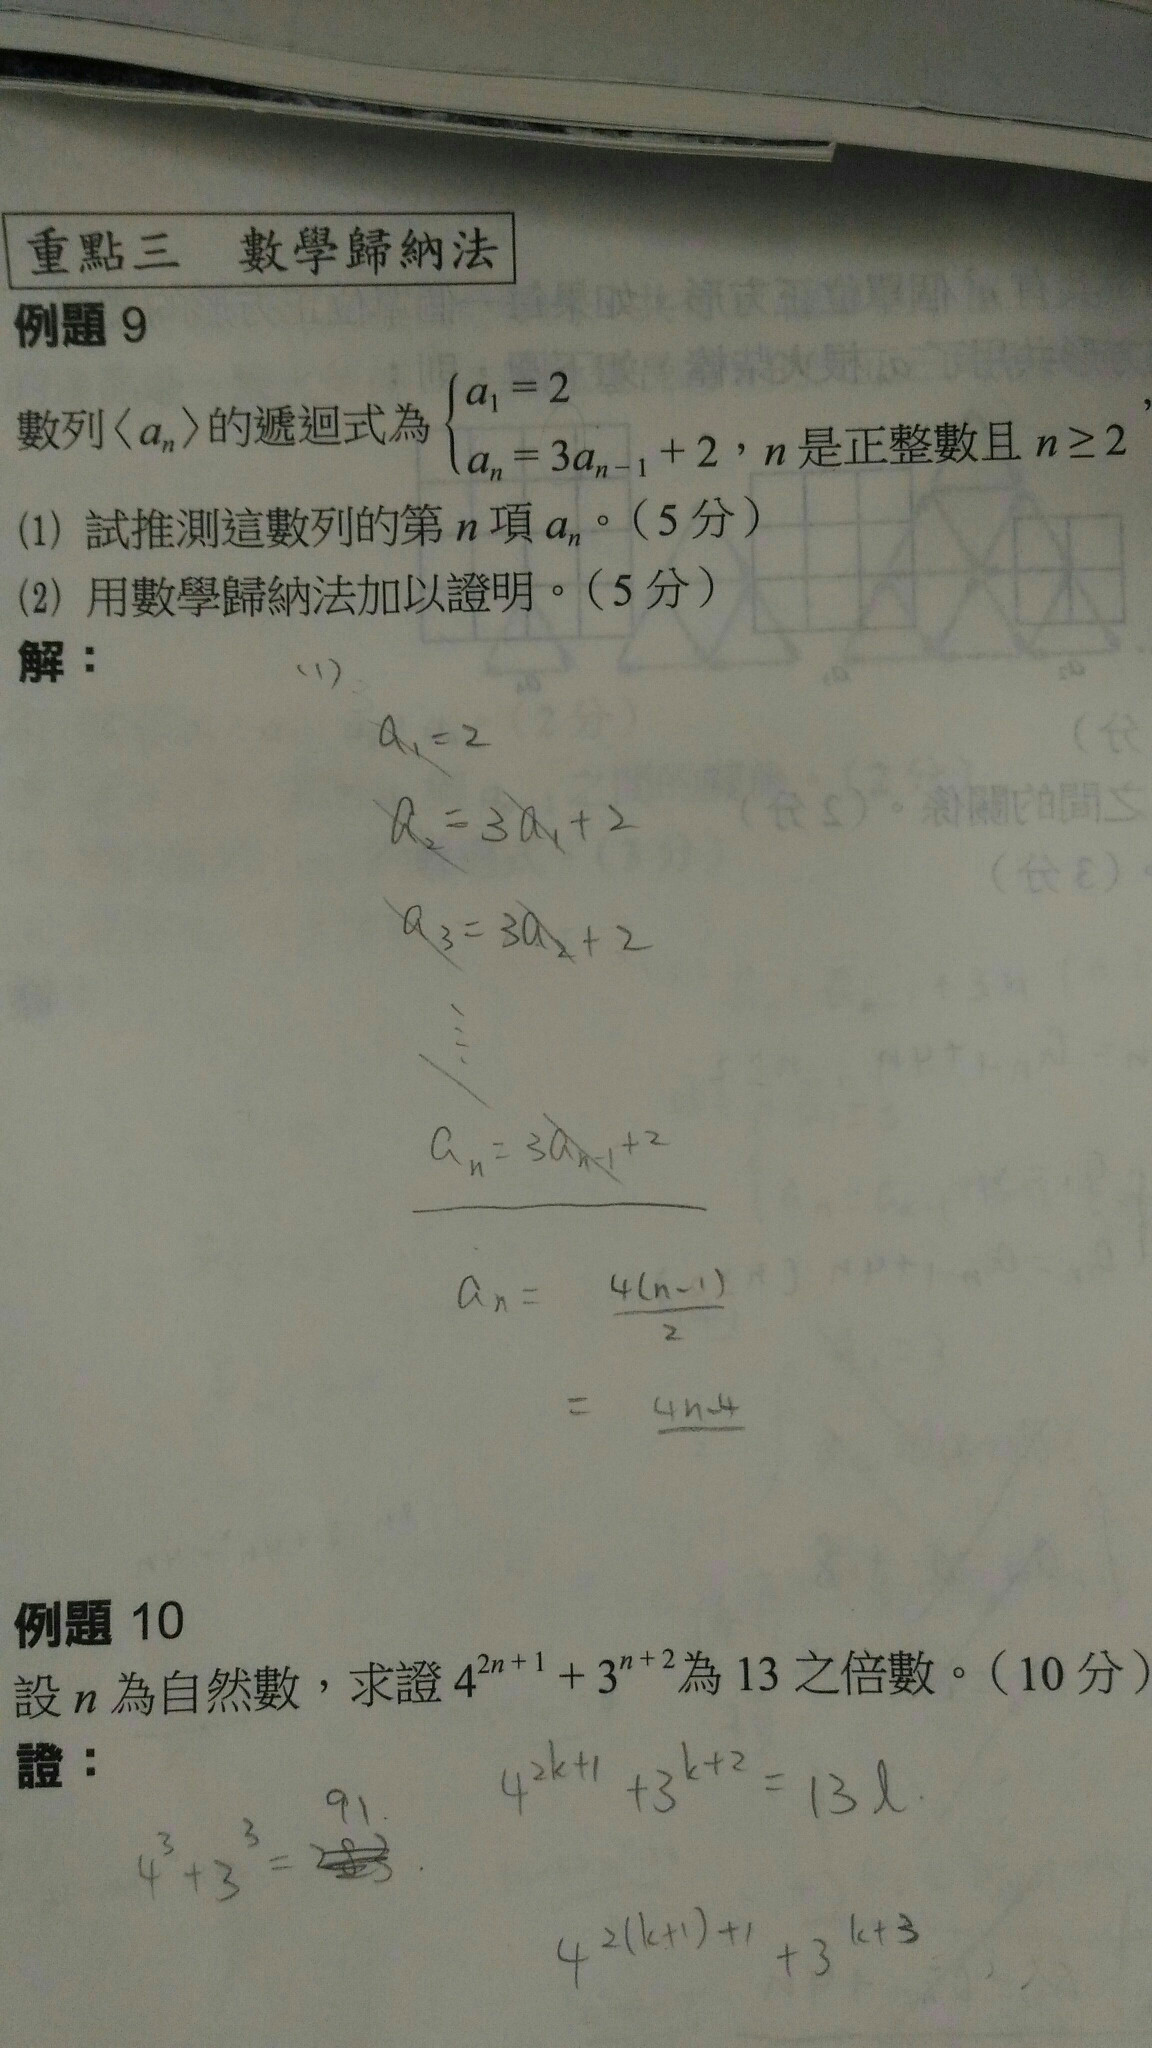 重點三 數學歸納法
例題 9
數列〈aₙ〉的遞迴式為 { a₁ = 2
aₙ = 3aₙ₋₁ + 2，n 是正整數且 n ≥ 2，
(1) 試推測這數列的第 n 項 aₙ。（5 分）
(2) 用數學歸納法加以證明。（5 分）
解：
(1)
a₁ = 2
a₂ = 3a₁ + 2
a₃ = 3a₂ + 2
⋮
aₙ = 3aₙ₋₁ + 2
aₙ = 4(n-1)/2
= 4n-4
例題 10
設 n 為自然數，求證 4²ⁿ⁺¹ + 3ⁿ⁺² 為 13 之倍數。（10 分）
證：
4^(2k+1) + 3^(k+2) = 13l.
4³ + 3³ = 91.
4^(2(k+1)+1) + 3^(k+3)